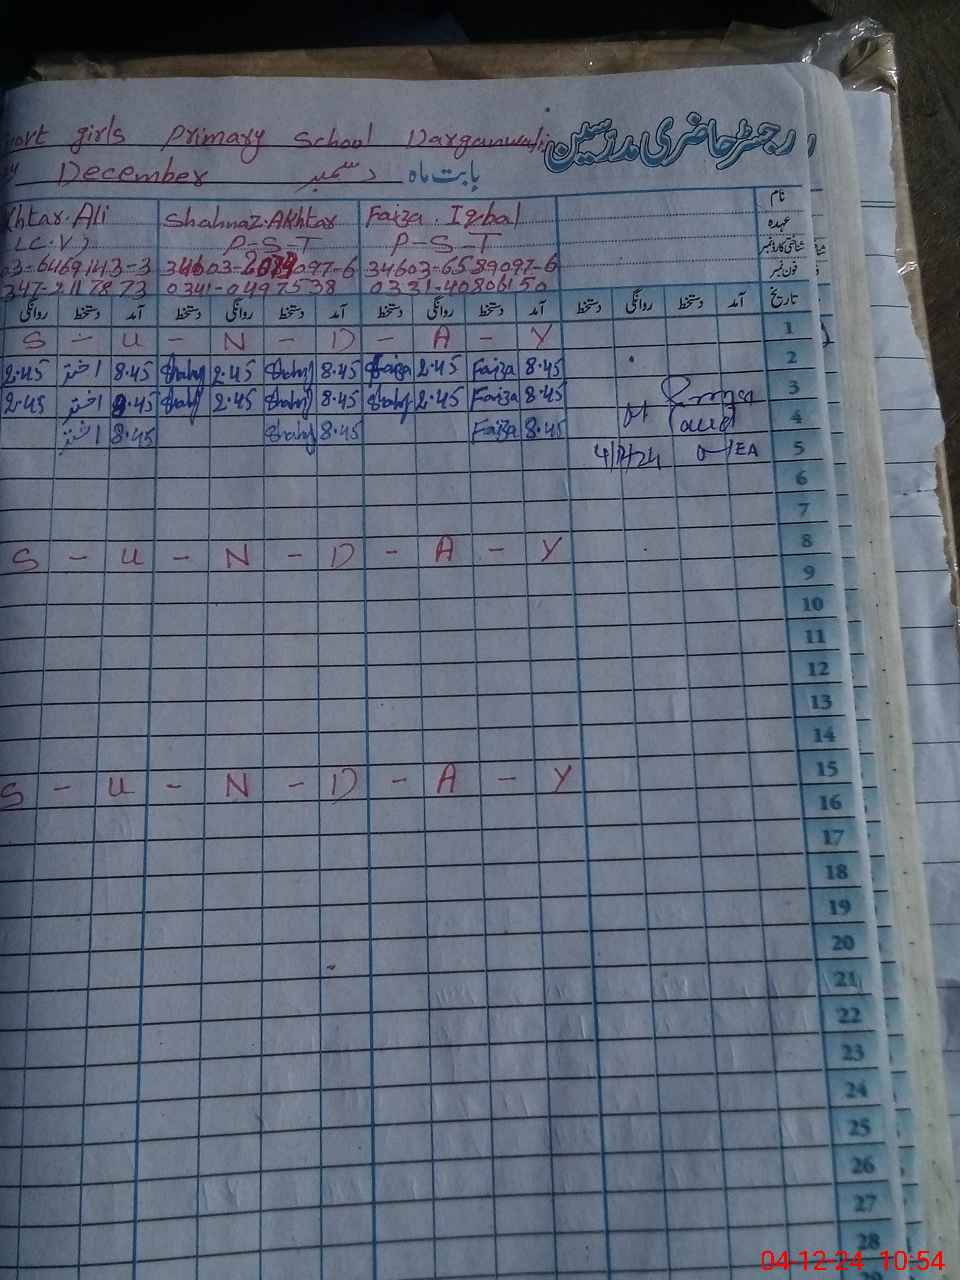 رجسٹر حاضری مدرسین
girls Primary School Darganwali
December دسمبر بابت ماہ
نام
Khtar. Ali Shahnaz. Akhtar Faiza. Iqbal
عہدہ
(C.V) P-S-T P-S-T
شناختی کارڈ نمبر
03-6469143-3 34603- 097-6 34603-6589097-6
فون نمبر
347-2117873 0341-0497538 0331-40806150
روانگی دستخط آمد دستخط روانگی دستخط آمد دستخط روانگی دستخط آمد دستخط روانگی دستخط آمد تاریخ
S - U - N - D - A - Y 1
2.45 اختر 8.45 Shahj 2.45 Shahj 8.45 Faiza 2.45 Faiza 8.45 2
2.45 اختر 8.45 Shahj 2.45 Shahj 8.45 Shahj 2.45 Faiza 8.45 3
اختر 8.45 Shahj 8.45 Faiza 8.45 4
4/12/24 EA 5
6
7
S - U - N - D - A - Y 8
9
10
11
12
13
14
S - U - N - D - A - Y 15
16
17
18
19
20
21
22
23
24
25
26
27
28
04-12-24 10:54